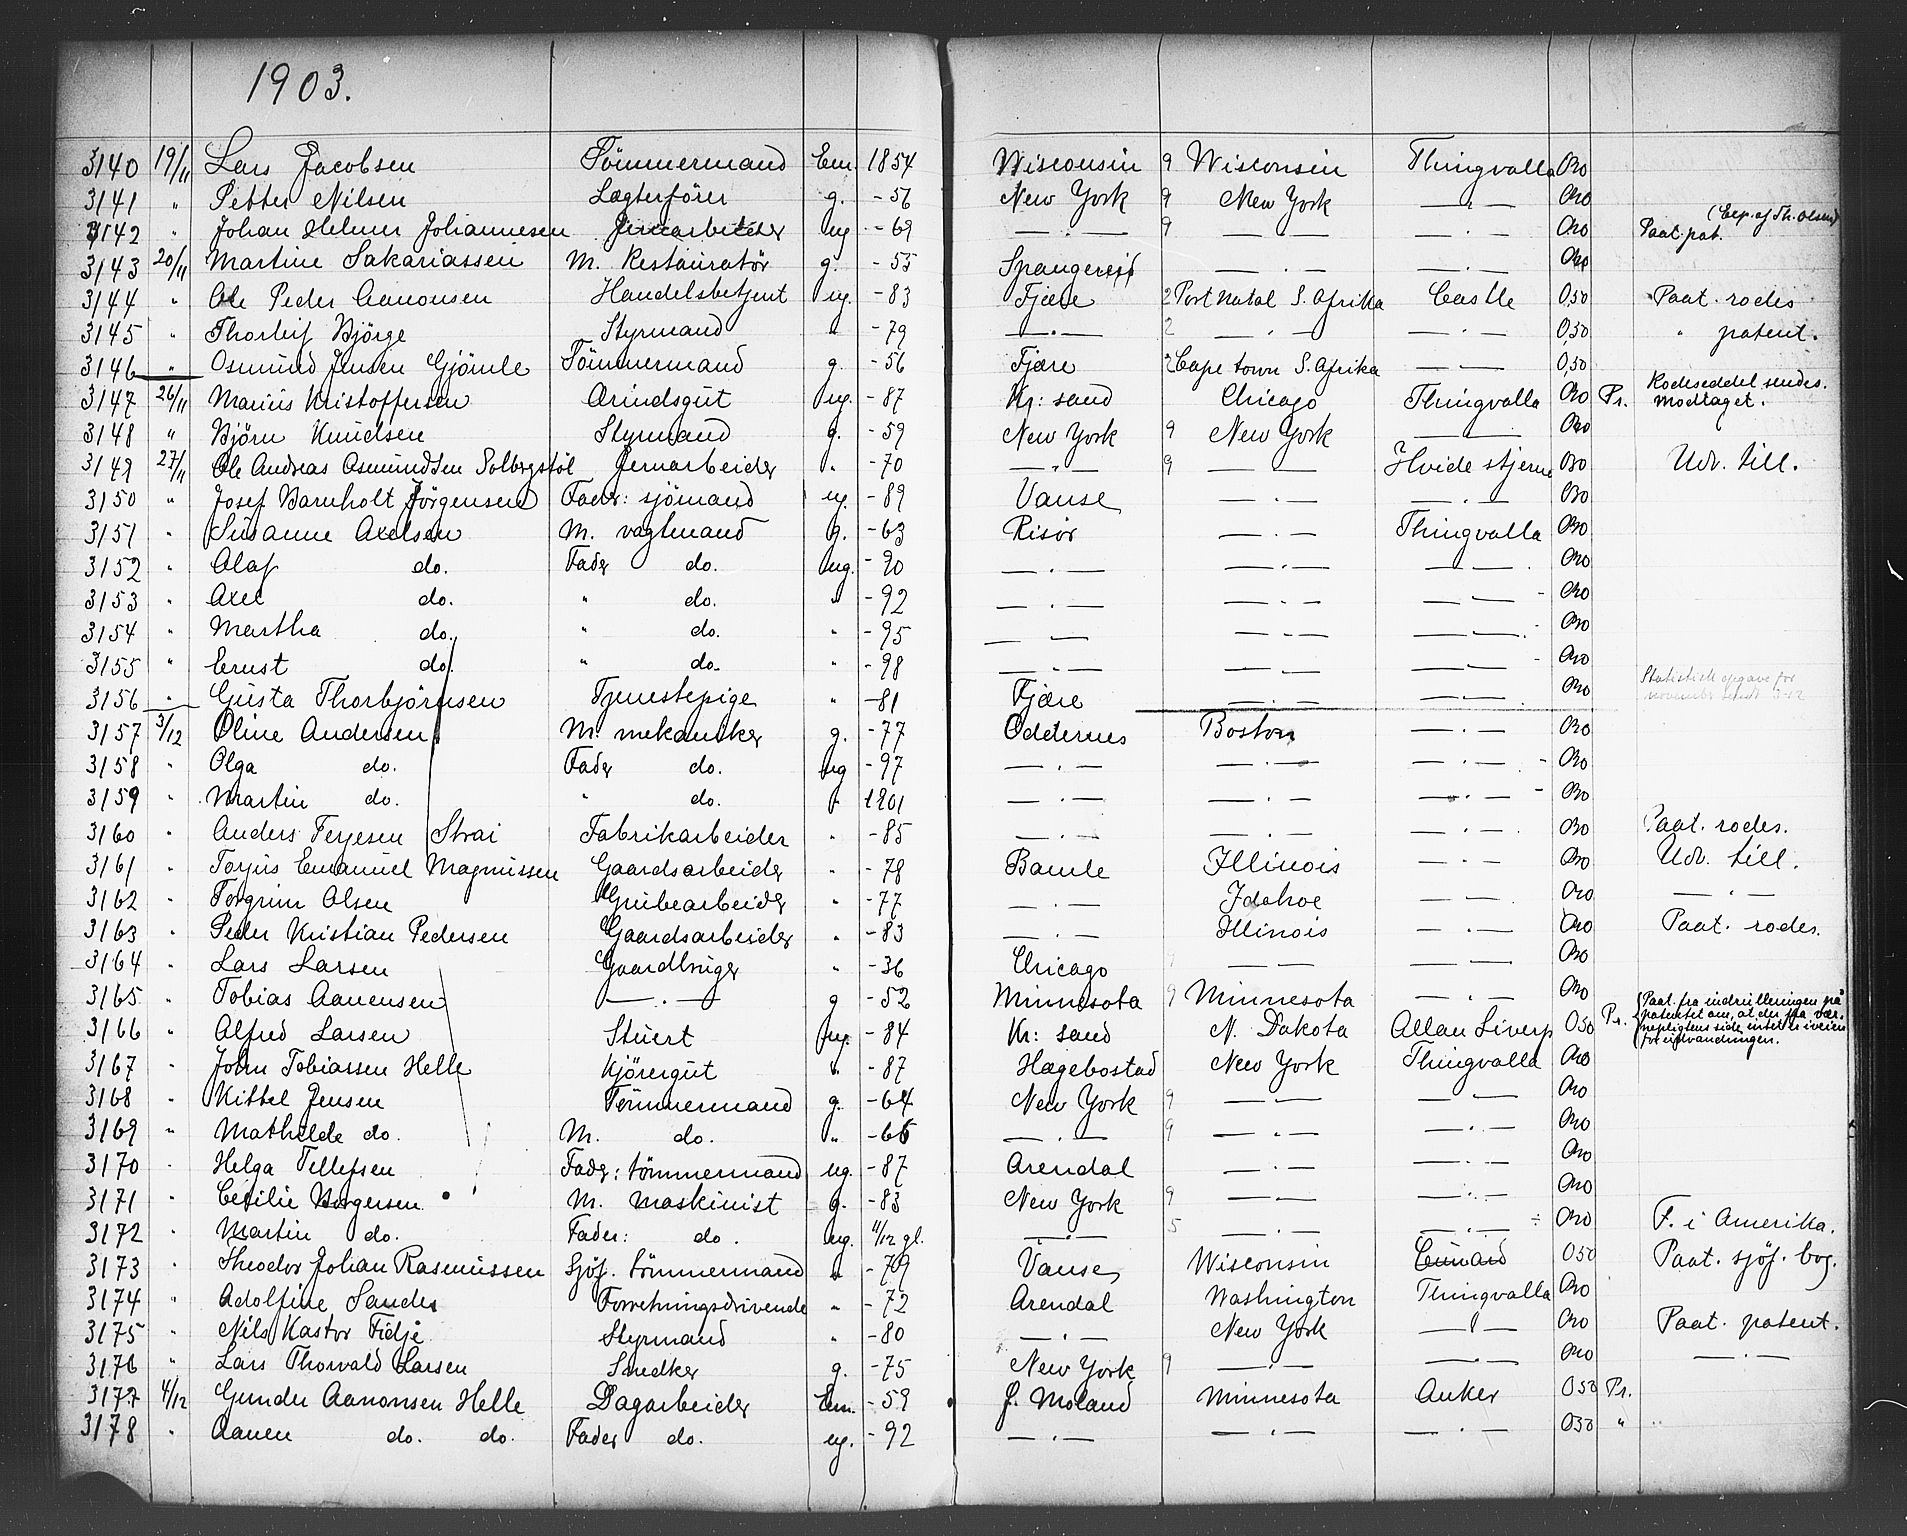 1903.
3140 19/11 Lars Jacobsen Tömmermand Em. 1854 Wisconsin 9 Wisconsin Thingvalla Oro
3141 " Petter Nilsen Lægterförer g. -56 New York 9 New York —"— Oro
3142 " Johan Helmer Johannesen Jernarbeider ug -69 —"— 9 —"— —"— Oro Paat. pat.
3143 20/11 Martine Sakariassen M. Restauratør g. -55 Spangereid —"— —"— Oro
3144 " Ole Peder Aanonsen Handelsbetjent ug. -83 Fjære 2 Port Natal S. Afrika Castle 0,50 Paat. rodes
3145 " Thorleif Bjørge Styrmand " -79 —"— 2 —"— —"— 0,50 " patent.
3146 " Osmund Jensen Gjömle Tömmermand g. -56 Fjære 2 Cape town S. Afrika —"— 0,50
3147 26/11 Marius Kristoffersen Ærindsgut ug. -87 Kr: sand Chicago Thingvalla Oro Pr. Rodeseddel sendes. modtaget.
3148 " Björn Knudsen Styrmand g. -59 New York 9 New York —"— Oro
3149 27/11 Ole Andreas Osmundsen Solbergstöl Jernarbeider " -70 —"— 9 —"— Hvide stjerne Oro Udv. till.
3150 " Josef Barnholt Jörgensen Fader: sjömand ug. -89 Vanse —"— —"— Oro
3151 " Susanne Axelsen M. vagtmand g. -63 Risör —"— Thingvalla Oro
3152 " Olaf do. Fader do. ug. -90 —"— —"— —"— Oro
3153 " Axel do. " do. " -92 —"— —"— —"— Oro
3154 " Martha do. " do. " -95 —"— —"— —"— Oro
3155 " Ernst do. " do. " -98 —"— —"— —"— Oro
3156 " Gusta Thorbjörnsen Tjenestepige " -81 Fjære —"— —"— Oro Statistisk opgave for november sendt 3-12
3157 3/12 Oline Andersen M. mekaniker g. -77 Oddernes Boston —"— Oro
3158 " Olga do. Fader do. ug -97 —"— —"— —"— Oro
3159 " Martin do. " do. " 1901 —"— —"— —"— Oro
3160 " Anders Terjesen Strai Fabrikarbeider " -85 —"— —"— —"— Oro Paat. rodes.
3161 " Torjus Emanuel Magnussen Gaardsarbeider " -78 Bamle Illinois —"— Oro Udv. till.
3162 " Torgrim Olsen Grubearbeider " -77 —"— Idahoe —"— Oro —"—
3163 " Peder Kristian Pedersen Gaardsarbeider " -83 —"— Illinois —"— Oro Paat. rodes.
3164 " Lars Larsen Gaardbruger " -36 Chicago —"— Oro
3165 " Tobias Aanensen —"— g -52 Minnesota 9 Minnesota —"— Oro
3166 " Alfred Larsen Stuert ug. -84 Kr: sand N. Dakota Allan Liverp 050 Pr. Paat. fra indrulleringen på patentet om, at der fra værnepligtens side intet er iveien for udvandringen.
3167 " John Tobiassen Helle Kjörergut " -87 Hægebostad New York Thingvalla Oro
3168 " Kittel Jensen Tömmermand g. -64 New York 9 —"— —"— Oro
3169 " Mathilde do. M. do. " -66 —"— 9 —"— —"— Oro
3170 " Helga Tellefsen Fader: tömmermand ug. -87 Arendal —"— —"— Oro
3171 " Cecilie Borgersen M. maskinist g. -83 New York 9 —"— —"— Oro
3172 " Martin do. Fader: do. ug. 4/12 gl. —"— 5 —"— —"— Oro F. i Amerika.
3173 " Theodor Johan Rasmussen Sjöf. tömmermand " -79 Vanse Wisconsin Cunard 050 Paat. sjöf. bog.
3174 " Adolfine Sander Forretningsdrivende " -72 Arendal Washington Thingvalla Oro
3175 " Nils Kastor Fidje Styrmand " -80 —"— New York —"— Oro Paat. patent.
3176 " Lars Thorvald Larsen Snedker g. -75 New York 9 —"— —"— Oro —"—
3177 4/12 Gunder Aanonsen Helle Dagarbeider Em. -59 Ö. Moland Minnesota Anker 050 Pr.
3178 " Aanen do. do. Fader do. ug. -92 —"— —"— —"— 050 " "